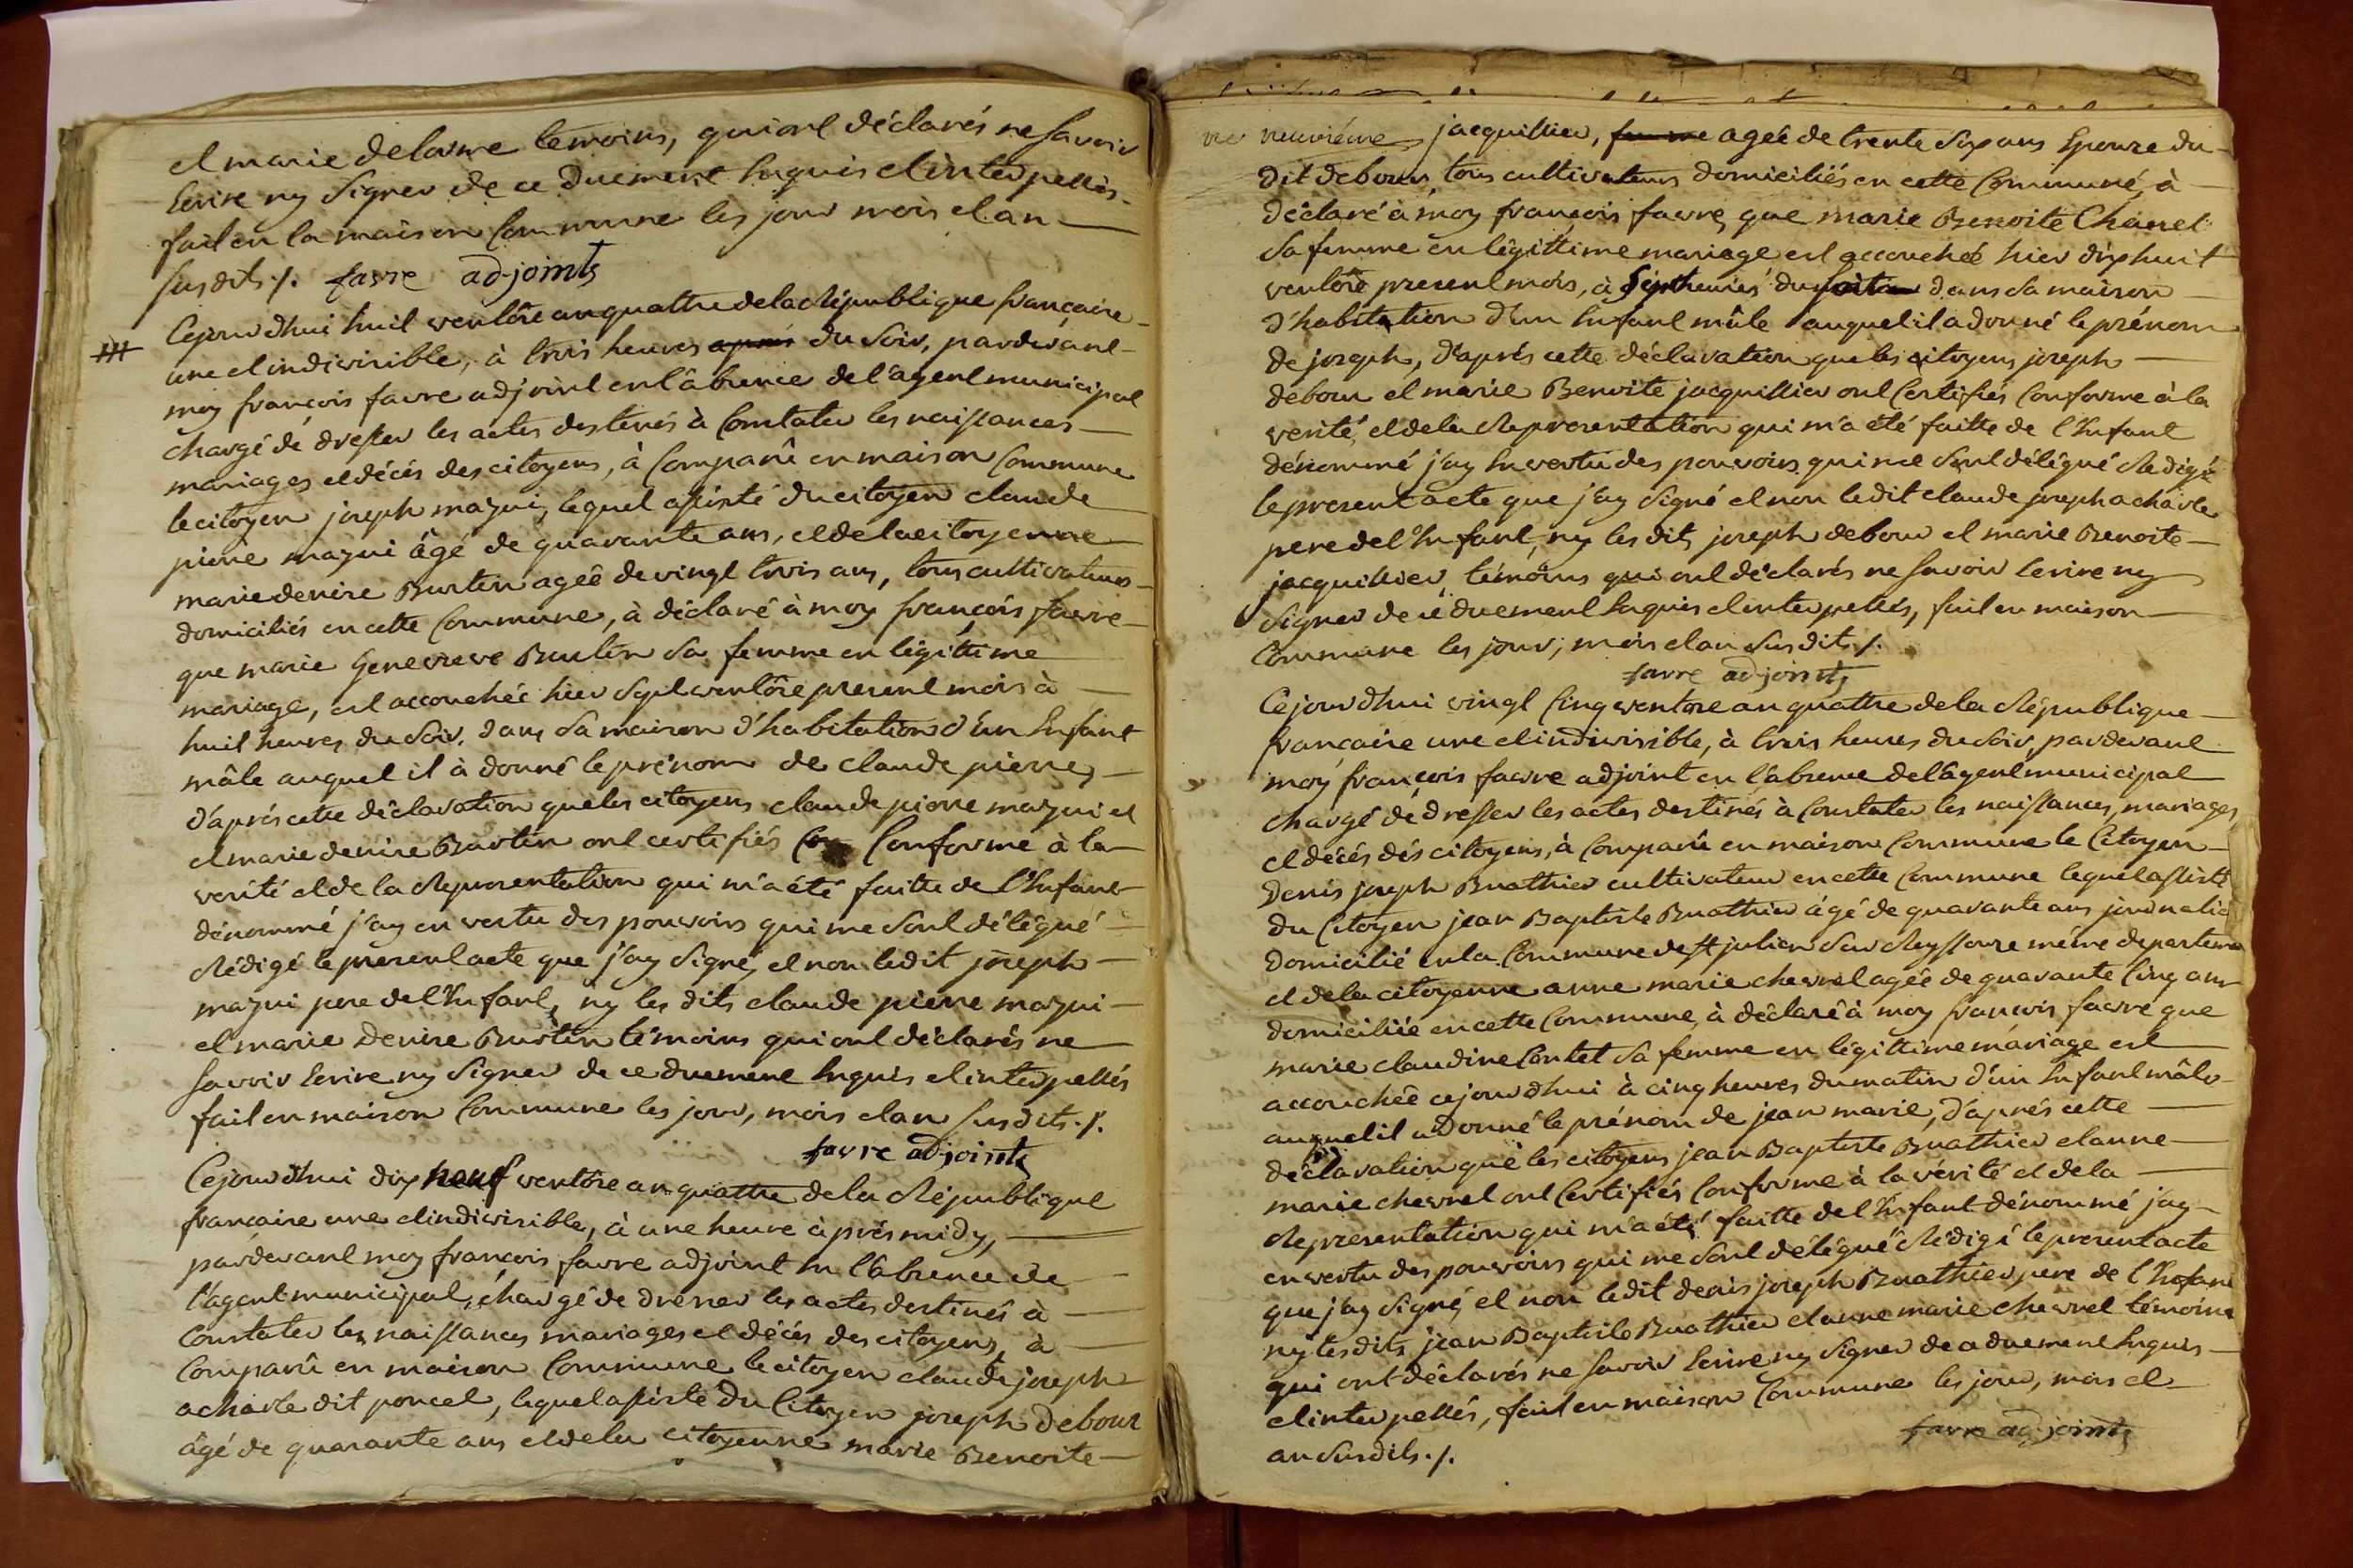 et marie delorme temoins, qui ont déclarés ne savoir
Ecrire ny signer de ce Duement Enquis et interpellés
fait en la maison Commune les jour mois et an
susdits ./. favre adjoints
Cejourdhui huit ventôse an quattre de la République françaire
une et indivisible, à trois heures après du soir, pardevant
moy françois favre adjoint en l'absence de l'agent municipal
chargé de dresser les actes destinés à Constater les naissances
mariages et décès des citoyens, à Comparû en maison Commune
le citoyen joseph mazui, lequel assisté du citoyen claude
pierre mazui âgé de quarante ans, et de la citoyenne
marie denise Burtin ageé de vingt trois ans, tous cultivateurs
domiciliés en cette Commune, à déclaré à moy françois favre
que marie Genevieve Burtin sa femme en légittime
mariage, est accouchée hier sept ventôse present mois à
huit heures du soir, dans sa maison d'habitation d'un Enfant
mâle auquel il à donné le prénom de claude pierre,
d'après cette déclaration que les citoyens claude pierre mazui et
et marie denise Burtin ont certifiés Con Conforme à la
verité et de la Representation qui m'a été faitte de l'Enfant
dénommé j'ay en vertu des pouvoirs qui me sont délégué
Rédigé le present acte que j'ay signé, et non ledit joseph
mazui pere de l'Enfant, ny les dits claude pierre mazui
et marie Denise Burtin témoins qui ont déclarés ne
savoir Ecrire ny signer de ce duement Enquis et interpellés
fait en maison Commune les jour, mois et an susdits ./.
favre adjoints
Cejourdhui dix neuf ventôse an quattre de la République
francaire une et indivisible, à une heure après midy,
pardevant moy françois favre adjoint En l'absence de
l'agent municipal, chargé de dresser les actes destinés à
Constater les naissances mariages et décés des citoyens, à
Comparû en maison Commune le citoyen claude joseph
acharle dit poncet, lequel assisté du Citoyen joseph debour
âgé de quarante ans et de la citoyenne marie Benoite
jacquillier, femme ageé de trente six ans Epouze du
dit debour, tous cultivateurs domiciliés en cette Commune, à
déclaré à moy françois favre, que marie Benoite Chanel
sa femme en légittime mariage est accouchée hier dixhuit
ventôse present mois, à sept heures du dans sa maison
d'habitation d'un Enfant mâle auquel il a donné le prénom
de joseph, d'aprés cette déclaration que les citoyens joseph
debour et marie Benoite jacquillier ont Certifiés Conforme à la
verité, et de la Representation qui m'a été faitte de l'Enfant
dénommé j'ay En vertu des pouvoirs qui me sont délégué Redigé
le present acte que j'ay signé et non ledit claude joseph acharle
pere de l'Enfant, ny les dits joseph debour et marie Benoite
jacquillier, témoins qui ont déclarés ne savoir Ecrire ny
signer de ce duement Enquis et interpellés, fait en maison
Commune les jour, mois et an susdits ./.
favre adjoints
Cejourdhui vingt Cinq ventose an quattre de la République
francaire une et indivisible, à trois heures du soir, pardevant
moy françois favre adjoint en l'absence de l'agent municipal
chargé de dresser les actes destinés à Constater les naissances, mariages
et décés dés citoyens, à Comparû en maison Commune le Citoyen
Denis joseph Buathier cultivateur en cette Commune lequel assisté
du Citoyen jean Baptiste Buathier âgé de quarante ans journalié
domicilié en la Commune de st julien sur Reyssouze même departeme
et de la citoyenne anne marie chevrel ageé de quarante Cinq ans
domiciliée en cette Commune, à déclaré à moy francois favre que
marie claudine Contet sa femme en légittime mariage est
accouchée cejourdhui à cinq heures du matin d'un Enfant mâle
auquel il a donné le prénom de jean marie, d'aprés cette
déclaration què les citoyens jean Baptiste Buathier et anne
marie chevrel ont Certifiés Conforme à la vérité et de la
Representation qui m'a été faitte de l'Enfant dénommé j'ay
en vertu des pouvoirs qui me sont délégué Rédigé le present acte
que j'ay signé, et non ledit denis joseph Buathier pere de l'Enfant
ny les dits jean Baptiste Buathier et anne marie chevrel témoins
qui ont déclarés ne savoir Ecrire ny signer de ce duement Enquis
et interpellés, fait en maison Commune les jour, mois et
an susdits ./.
favre adjoints